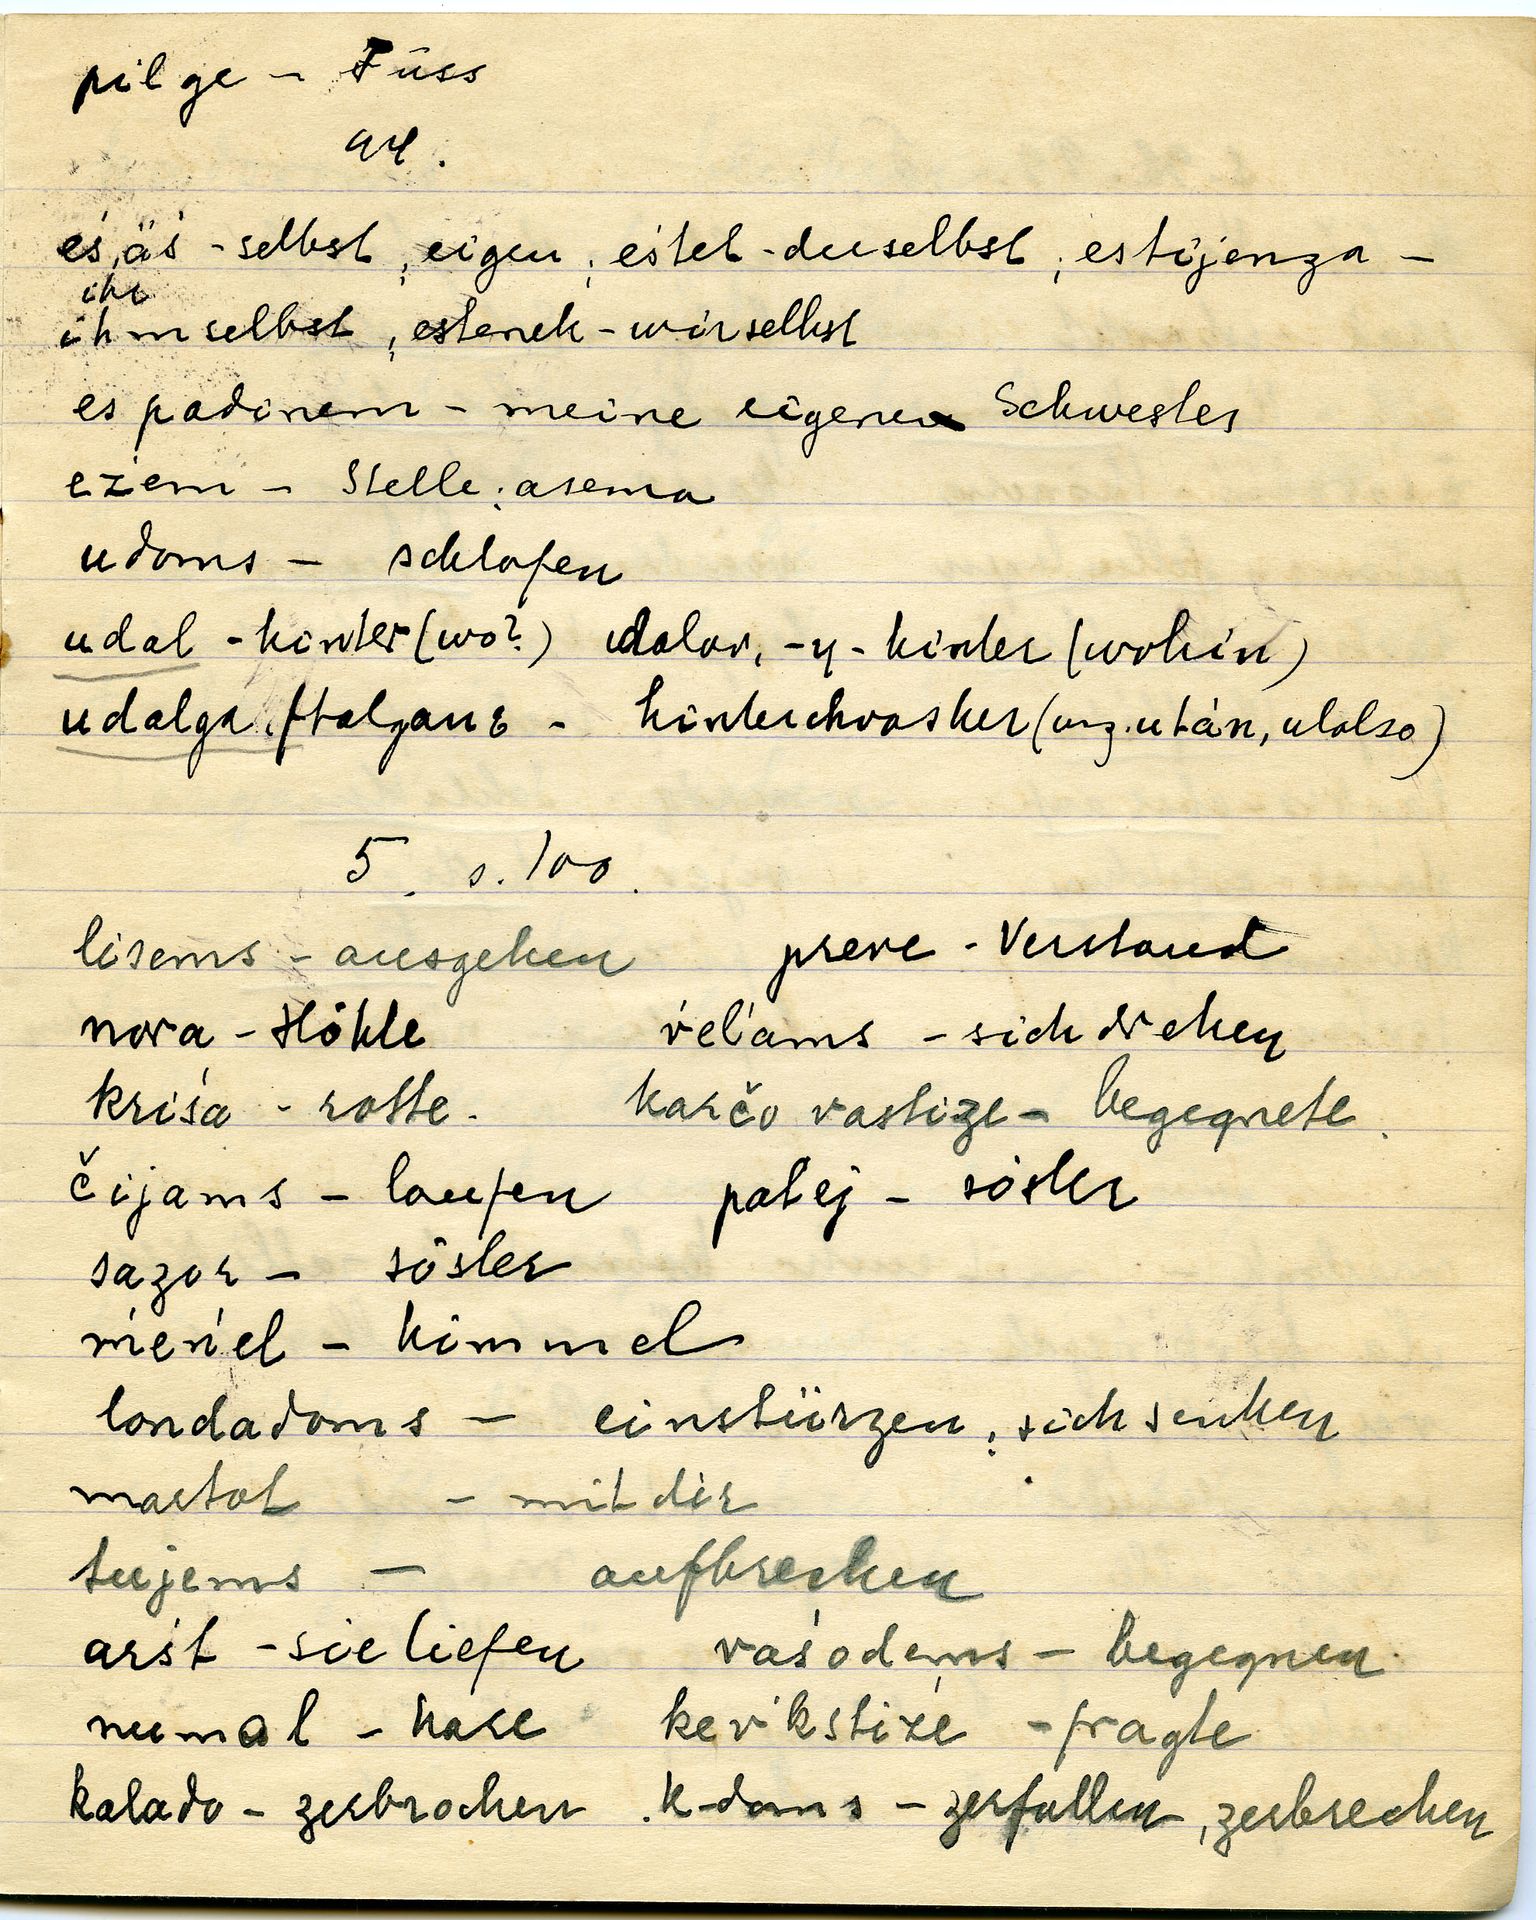 pilge - Füss
94.
eś, äś - selbst, eigen, eśtet - du selbst, estijenza -
ihr
ihm selbst, estenek - wir selbst
es padinem - meine eigene Schwester
ežem - Stelle, asema
udoms - schlafen
udal - hinter (wo?) udalov, -ų - hinter (wohin)
udalga, ftalganz - (ung. után, ulolso)
5. s. 100.
lisems - ausgehen preve - Verstand
nora - Höhle vel'ams - sich drehen
kriśa - ratte. karčo vastize - begegnete.
čijams - laufen patej - söster
sazor - söster
meńel - himmel
londadoms - einstürzen, sich senken
martot - mit dir
tujems - aufbrechen
arśt - sie liefen vaśodems - begegnen
numal - hase kevkstize - fragte
kalado - zerbrochen. k-doms - zerfallen, zerbrechen